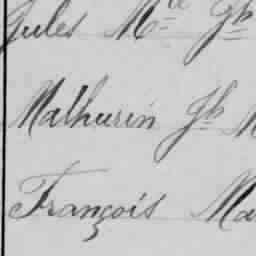 Jules Mie Jh
Mathurin Jh M
François Ma